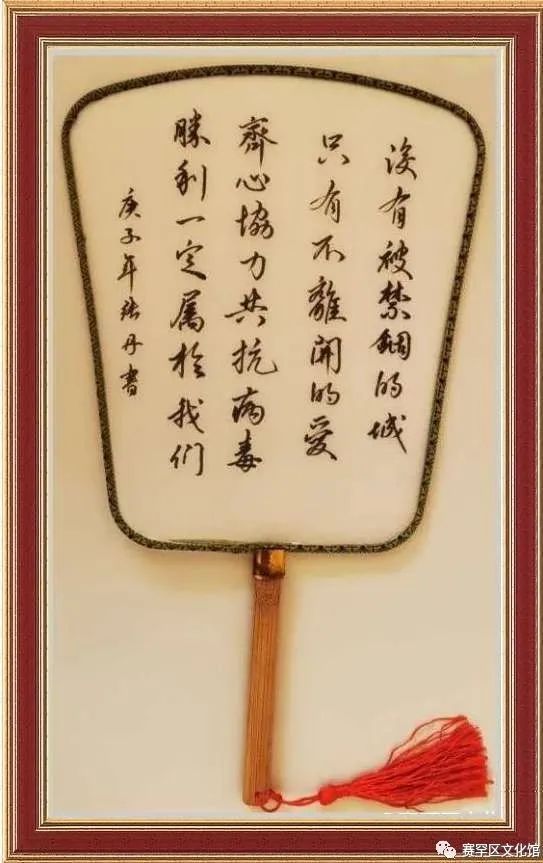 没有被禁錮的城
只有不離開的爱
齊心協力共抗病毒
勝利一定属於我们
庚子年张丹書
赛罕区文化馆